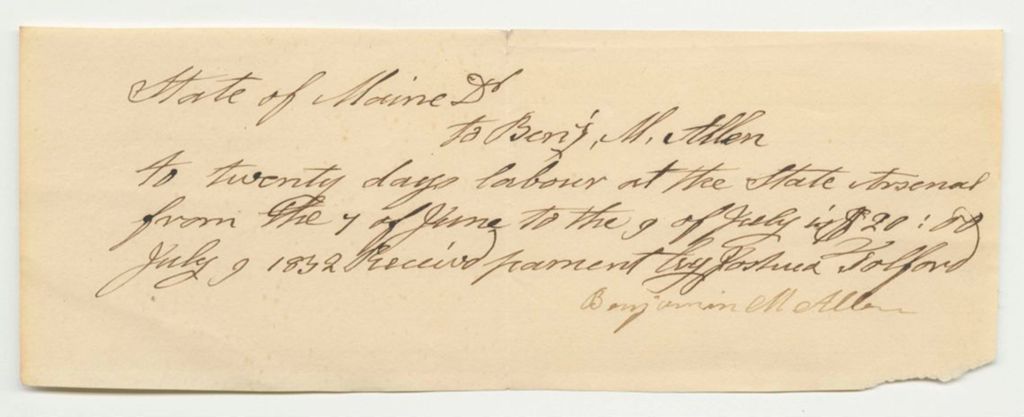 State of Maine Dr
to Benj. M. Allen
to twenty days labour at the State Arsenal
from the 7 of June to the 9 of July is $20:00
July 9 1832 Received pament by Joshua Tolford
Benjamin M Allen